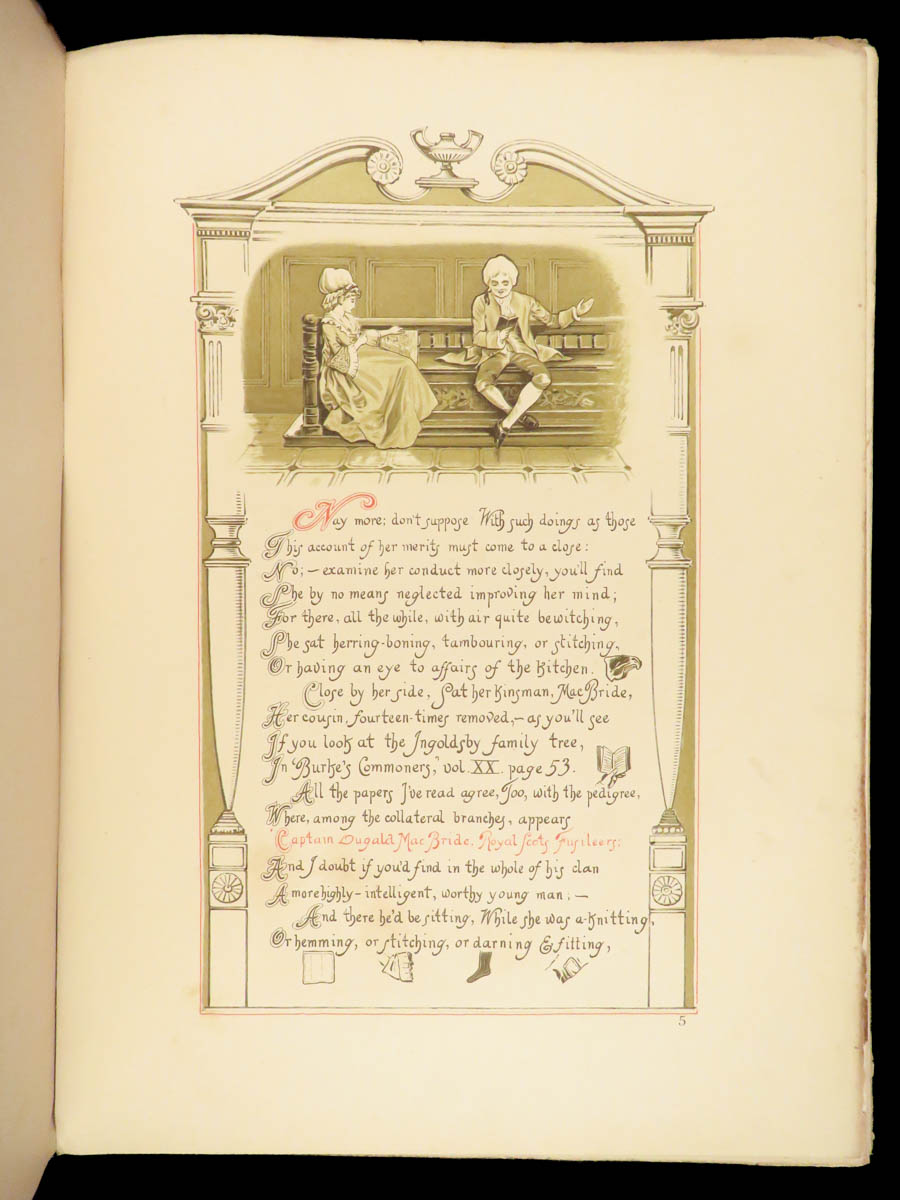 Nay more; don't suppose With such doings as those
This account of her merits must come to a close:
No; — examine her conduct more closely, you'll find
She by no means neglected improving her mind;
For there, all the while, with air quite bewitching,
She sat herring-boning, tambouring, or stitching,
Or having an eye to affairs of the Kitchen.
Close by her side, Sat her Kinsman, MacBride,
Her cousin, fourteen-times removed, — as you'll see
If you look at the Ingoldsby family tree,
In "Burke's Commoners," vol. XX. page 53.
All the papers I've read agree, Too, with the pedigree,
Where, among the collateral branches, appears
"Captain Dugald MacBride, Royal Scots Fusileers;"
And I doubt if you'd find in the whole of his clan
A more highly-intelligent, worthy young man; —
And there he'd be sitting, While she was a-Knitting,
Or hemming, or stitching, or darning & fitting,
5